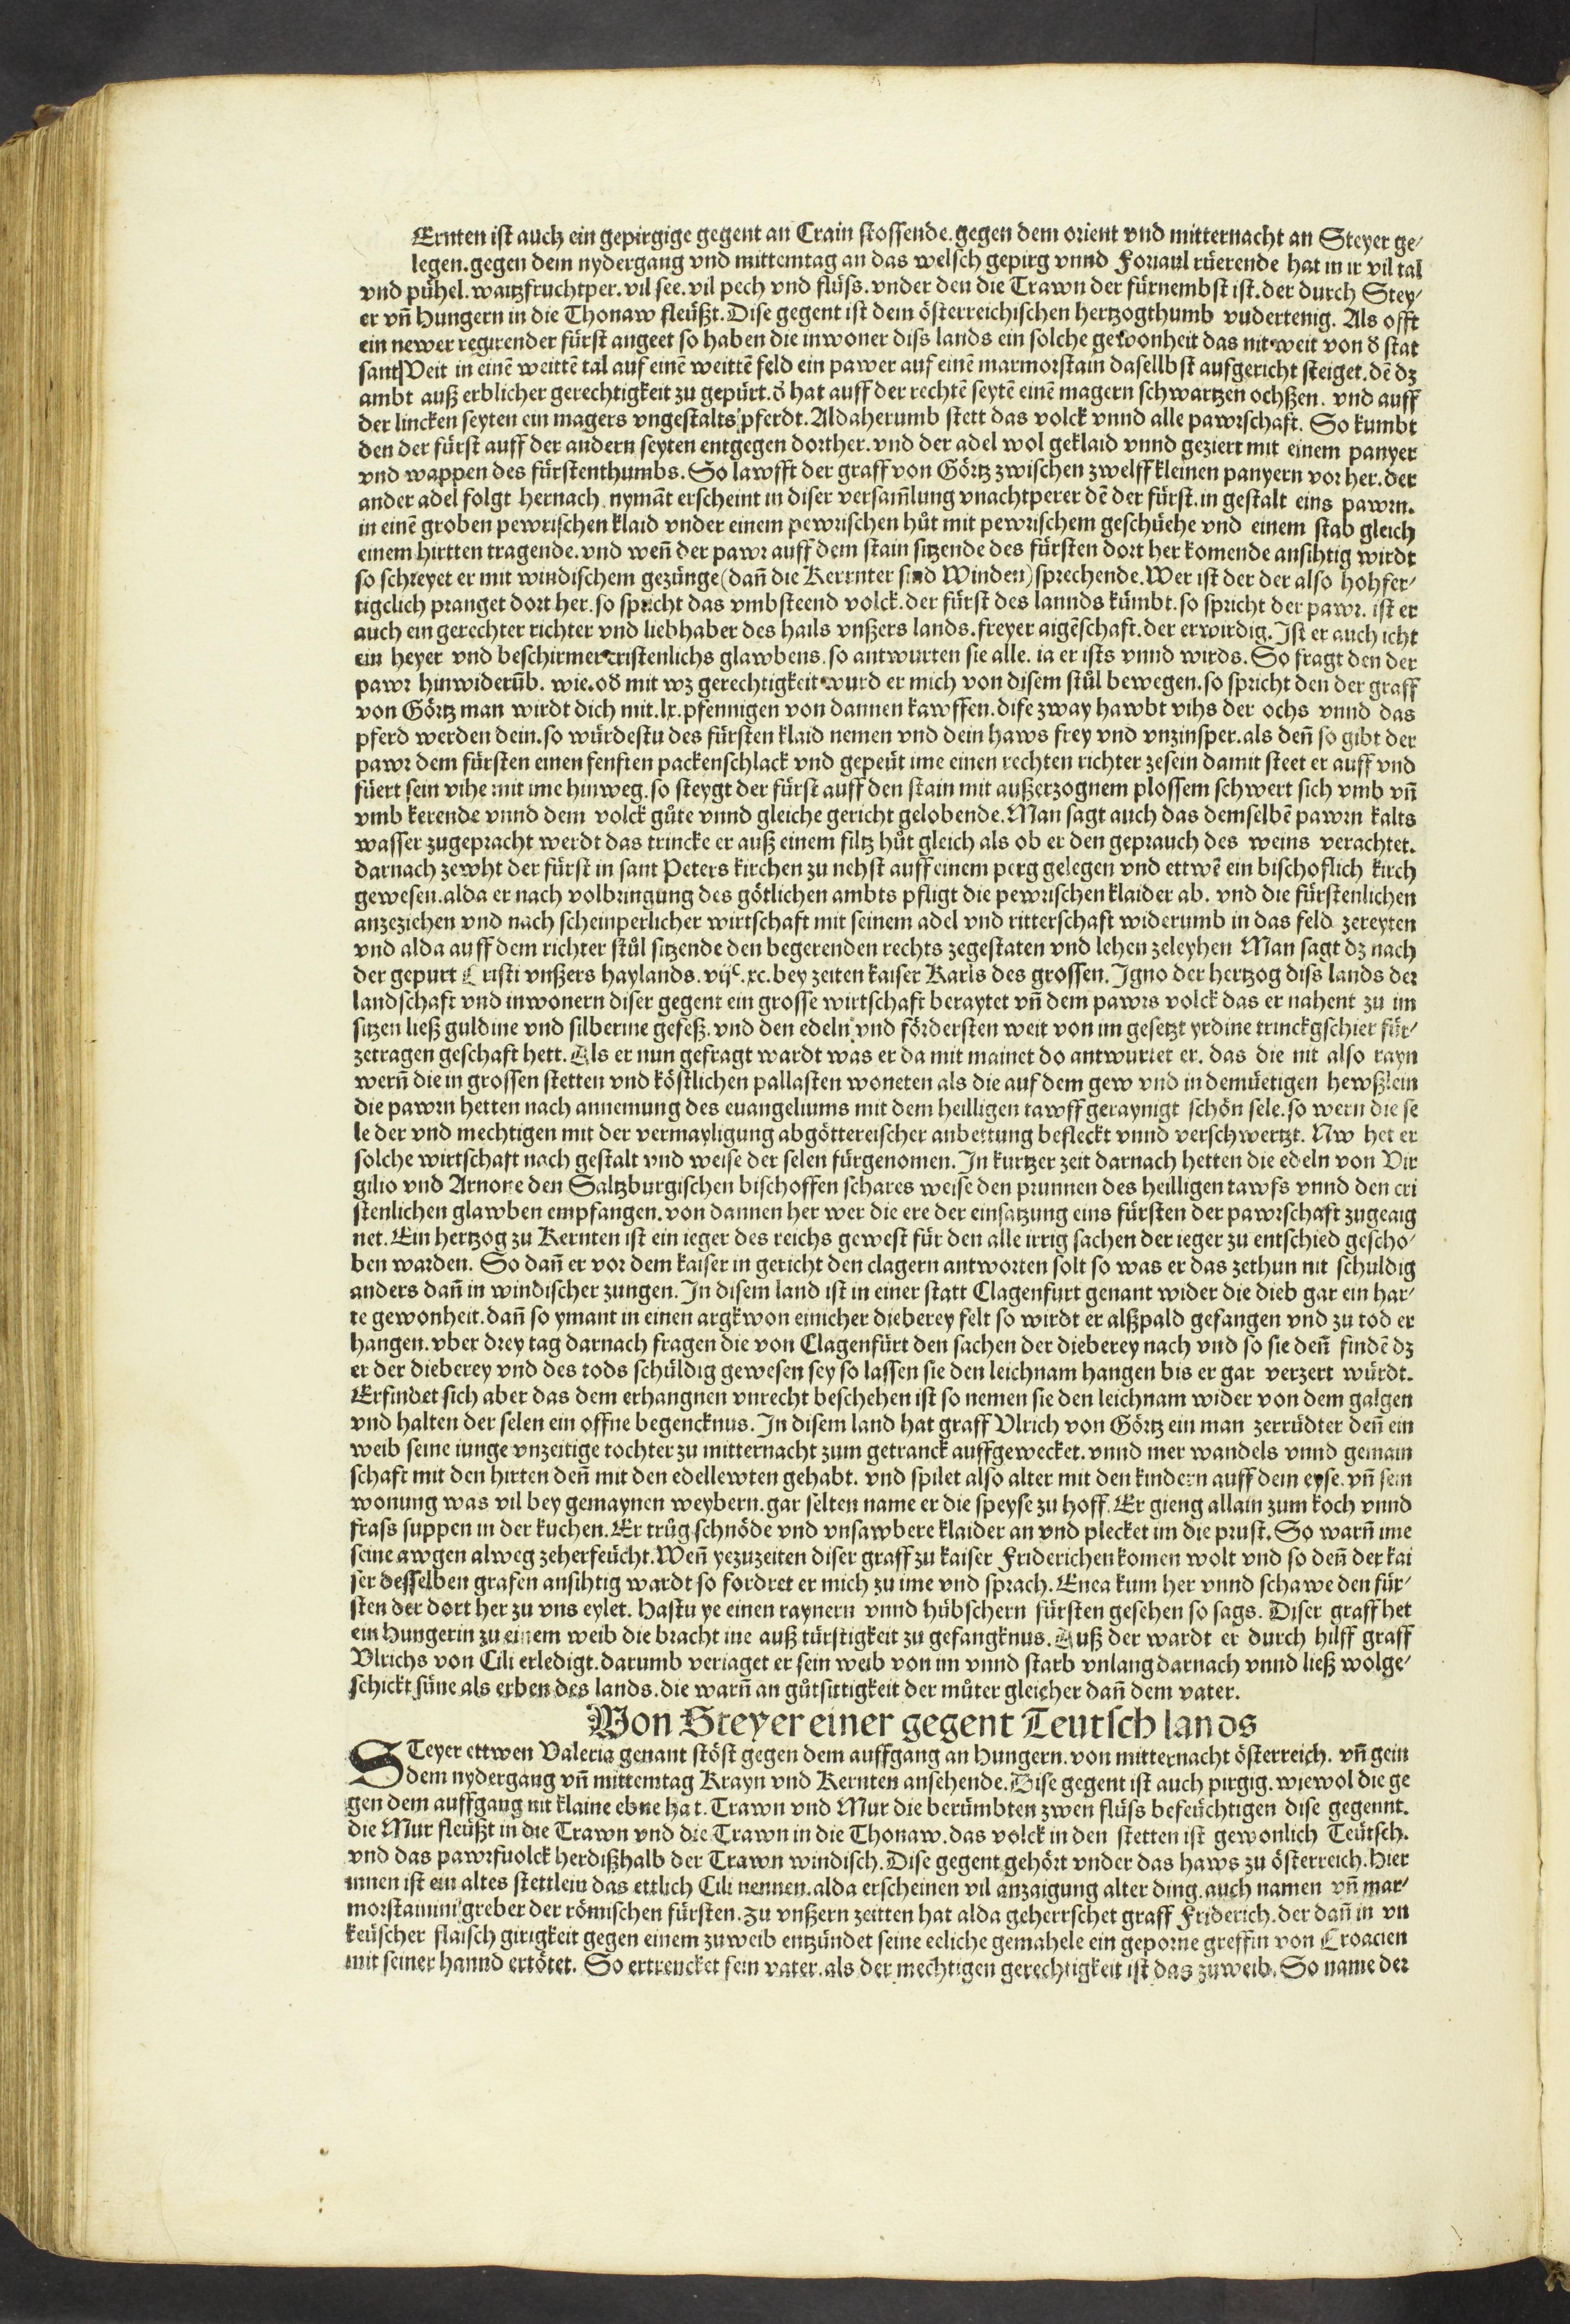 Ernten ist auch ein gepirgige gegent an Crain stossende. gegen dem orient vnd mitternacht an Steyer ge/
legen. gegen dem nydergang vnd mittemtag an das welsch gepirg vnnd Foriaul rüerende hat in ir vil tal
vnd pühel. waitzfruchtper. vil see. vil pech vnd flüss. vnder den die Trawn der fürnembst ist. der durch Stey/
er vñ Hungern in die Thonaw fleüßt. Dise gegent ist dem österreichischen hertzogthumb vndertenig. Als offt
ein newer regirender fürst angeet so haben die inwoner diss lands ein solche gewonheit das nit weit von d̕ stat
sant Veit in einē weittē tal auf einē weittē feld ein pawer auf einē marmorstain dasellbst aufgericht steiget. dē dz
ambt auß erblicher gerechtigkeit zu gepürt. d̕ hat auff der rechtē seytē einē magern schwartzen ochßen. vnd auff
der lincken seyten ein magers vngestalts pferdt. Aldaherumb stett das volck vnnd alle pawrschaft. So kumbt
den der fürst auff der andern seyten entgegen dorther. vnd der adel wol geklaid vnnd geziert mit einem panyer
vnd wappen des fürstenthumbs. So lawfft der graff von Görtz zwischen zwelff kleinen panyern vor her. der
ander adel folgt hernach. nymāt erscheint in diser versam̄lung vnachtperer dē der fürst. in gestalt eins pawrn.
in einē groben pewrischen klaid vnder einem pewrischen hůt mit pewrischem geschüehe vnd einem stab gleich
einem hirtten tragende. vnd weñ der pawr auff dem stain sitzende des fürsten dort her komende ansihtig wirdt
so schreyet er mit windischem gezünge (dañ die Kerrnter sind Winden) sprechende. Wer ist der der also hohfer/
tigclich pranget dort her. so spricht das vmbsteend volck. der fürst des lannds kümbt. so spricht der pawr. ist er
auch ein gerechter richter vnd liebhaber des hails vnßers lands. freyer aigēschaft. der erwirdig. Ist er auch icht
ein heyer vnd beschirmer cristenlichs glawbens. so antwurten sie alle. ia er ists vnnd wirds. So fragt den der
pawr hinwiderūb. wie. od̕ mit wz gerechtigkeit wurd er mich von disem stůl bewegen. so spricht den der graff
von Görtz man wirdt dich mit. lx. pfennigen von dannen kawffen. dise zway hawbt vihs der ochs vnnd das
pferd werden dein. so würdestu des fürsten klaid nemen vnd dein haws frey vnd vnzinsper. als deñ so gibt der
pawr dem fürsten einen fenften packenschlack vnd gepeüt ime einen rechten richter zesein damit steet er auff vnd
füert sein vihe mit ime hinweg. so steygt der fürst auff den stain mit außerzognem plossem schwert sich vmb vñ
vmb kerende vnnd dem volck gůte vnnd gleiche gericht gelobende. Man sagt auch das demselbē pawrn kalts
wasser zugepracht werdt das trincke er auß einem filtz hůt gleich als ob er den geprauch des weins verachtet.
darnach zewht der fürst in sant Peters kirchen zu nehst auff einem perg gelegen vnd ettwē ein bischoflich kirch
gewesen. alda er nach volbringung des götlichen ambts pfligt die pewrischen klaider ab. vnd die fürstenlichen
anzeziehen vnd nach scheinperlicher wirtschaft mit seinem adel vnd ritterschaft widerumb in das feld zereyten
vnd alda auff dem richter stůl sitzende den begerenden rechts zegestaten vnd lehen zeleyhen Man sagt dz nach
der gepurt Cristi vnßers haylands. vijᶜ. xc. bey zeiten kaiser Karls des grossen. Igno der hertzog diss lands der
landschaft vnd inwonern diser gegent ein grosse wirtschaft beraytet vñ dem pawrs volck das er nahent zu im
sitzen ließ guldine vnd silberine gefeß. vnd den edeln vnd fördersten weit von im gesetzt yrdine trinckgschier für/
zetragen geschaft hett. Als er nun gefragt wardt was er da mit mainet do antwurtet er. das die nit also rayn
werñ die in grossen stetten vnd köstlichen pallasten woneten als die auf dem gew vnd in demüetigen hewßlein
die pawrn hetten nach annemung des euangeliums mit dem heilligen tawff geraynigt schön sele. so wern die se
le der vnd mechtigen mit der vermayligung abgöttereischer anbettung befleckt vnnd verschwertzt. Nw het er
solche wirtschaft nach gestalt vnd weise der selen fürgenomen. In kurtzer zeit darnach hetten die edeln von Vir
gilio vnd Arnone den Saltzburgischen bischoffen schares weise den prunnen des heilligen tawfs vnnd den cri
stenlichen glawben empfangen. von dannen her wer die ere der einsatzung eins fürsten der pawrschaft zugeaig
net. Ein hertzog zu Kernten ist ein ieger des reichs gewest für den alle irrig sachen der ieger zu entschied gescho/
ben warden. So dañ er vor dem kaiser in gericht den clagern antworten solt so was er das zethun nit schuldig
anders dañ in windischer zungen. In disem land ist in einer statt Clagenfurt genant wider die dieb gar ein har/
te gewonheit. dañ so ymant in einen argkwon einicher dieberey felt so wirdt er alßpald gefangen vnd zu tod er
hangen. vber drey tag darnach fragen die von Clagenfürt den sachen der dieberey nach vnd so sie deñ findē dz
er der dieberey vnd des tods schüldig gewesen sey so lassen sie den leichnam hangen bis er gar verzert würdt.
Erfindet sich aber das dem erhangnen vnrecht beschehen ist so nemen sie den leichnam wider von dem galgen
vnd halten der selen ein offne begencknus. In disem land hat graff Vlrich von Görtz ein man zerrüdter deñ ein
weib seine iunge vnzeitige tochter zu mitternacht zum getranck auffgewecket. vnnd mer wandels vnnd gemain
schaft mit den hirten deñ mit den edellewten gehabt. vnd spilet also alter mit den kindern auff dem eyse. vñ sein
wonung was vil bey gemaynen weybern. gar selten name er die speyse zu hoff. Er gieng allain zum koch vnnd
frass suppen in der kuchen. Er trůg schnöde vnd vnsawbere klaider an vnd plecket im die prust. So warñ ime
seine awgen alweg zeherfeücht. Weñ yezuzeiten diser graff zu kaiser Friderichen komen wolt vnd so deñ der kai
ser desselben grafen ansihtig wardt so fordret er mich zu ime vnd sprach. Enea kum her vnnd schawe den für/
sten der dort her zu vns eylet. Hastu ye einen raynern vnnd hübschern fürsten gesehen so sags. Diser graff het
ein Hungerin zu einem weib die bracht ine auß türstigkeit zu gefangknus. Auß der wardt er durch hilff graff
Vlrichs von Cili erledigt. darumb veriaget er sein weib von im vnnd starb vnlang darnach vnnd ließ wolge/
schickt süne als erben des lands. die warñ an gůtsittigkeit der můter gleicher dañ dem vater.
Von Steyer einer gegent Teutsch lands
STeyer ettwen Valeria genant stöst gegen dem auffgang an Hungern. von mitternacht österreich. vñ gein
dem nydergang vñ mittemtag Krayn vnd Kernten ansehende. Dise gegent ist auch pirgig. wiewol die ge
gen dem auffgang nit klaine ebne hat. Trawn vnd Mur die berümbten zwen flüss befeüchtigen dise gegennt.
die Mur fleüßt in die Trawn vnd die Trawn in die Thonaw. das volck in den stetten ist gewonlich Teütsch.
vnd das pawrfuolck herdißhalb der Trawn windisch. Dise gegent gehört vnder das haws zu österreich. Hier
innen ist ein altes stettlein das ettlich Cili nennen. alda erscheinen vil anzaigung alter ding. auch namen vñ mar/
morstainini greber der römischen fürsten. Zu vnßern zeitten hat alda geherrschet graff Friderich. der dañ in vn
keüscher flaisch girigkeit gegen einem zuweib entzündet seine eeliche gemahele ein geporne greffin von Croacien
mit seiner hannd ertötet. So ertrencket sein vater. als der mechtigen gerechtigkeit ist das zuweib. So name der